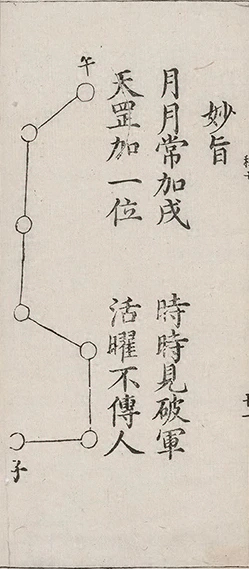 妙旨
月月常加戌 時時見破軍
天罡加一位 活曜不傳人
午
子